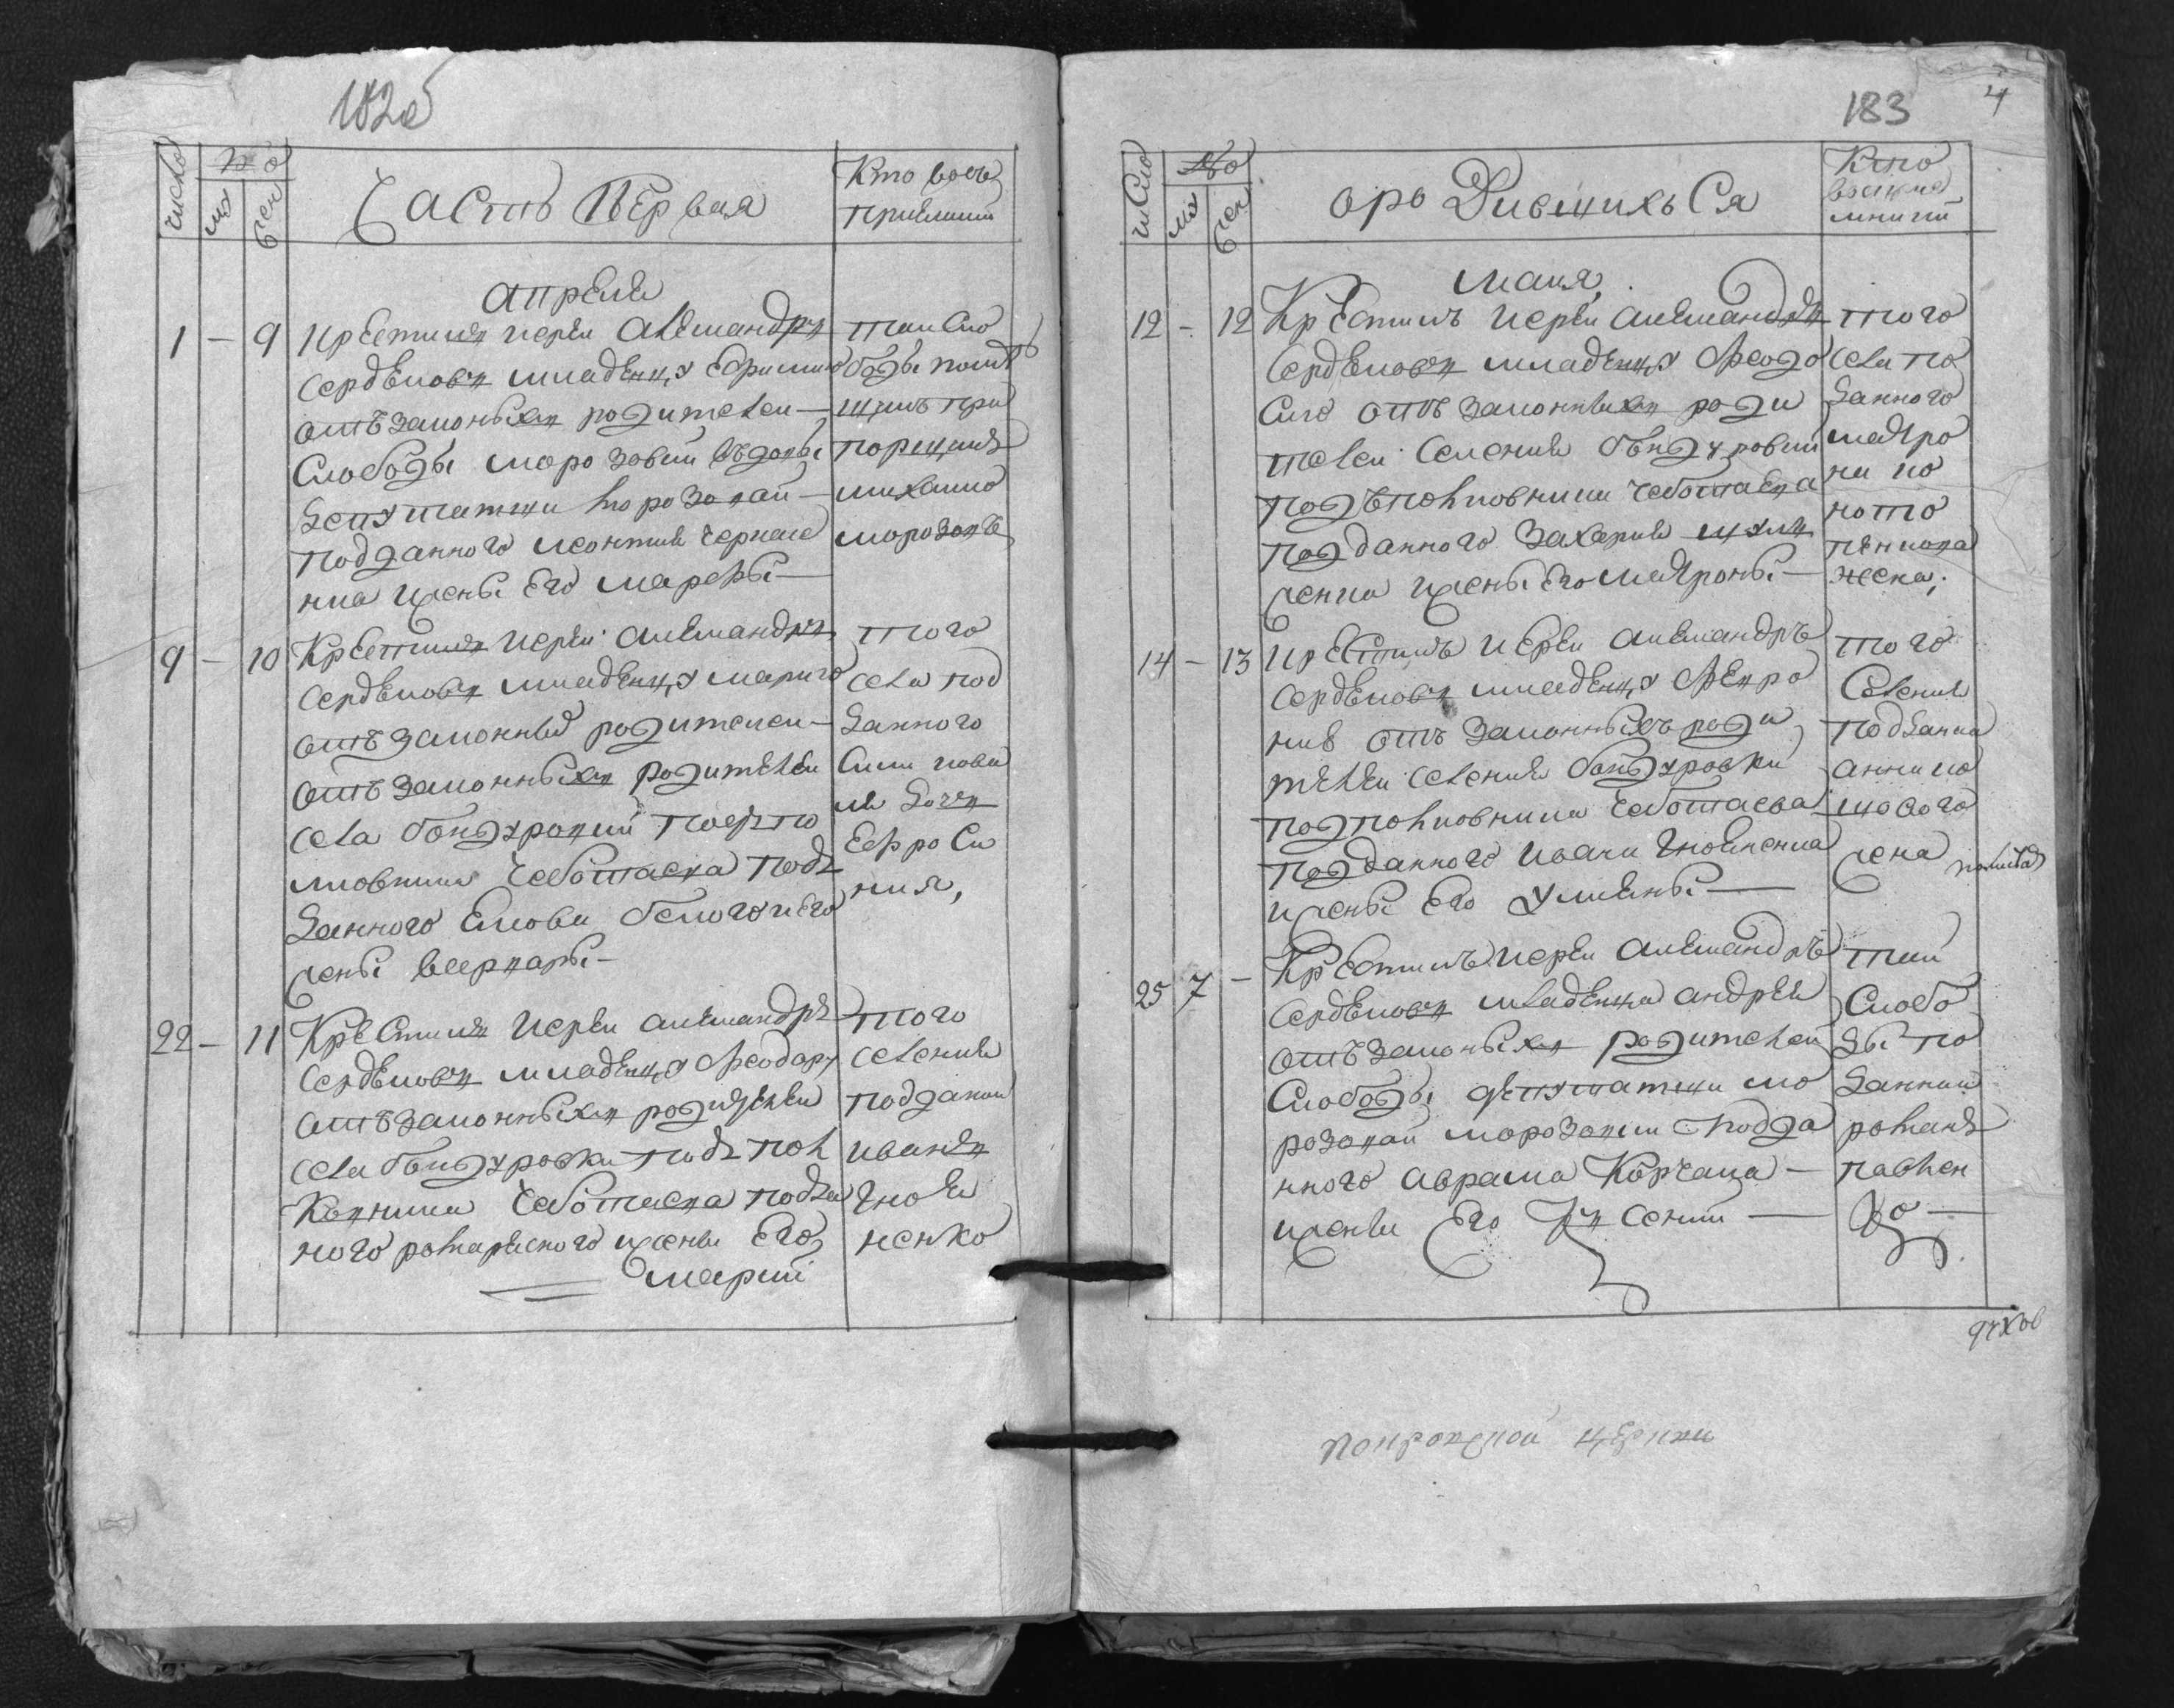 182об
число
№
мꙋ
жен
Часть Первая
Кто восъ
приемний
апреля
1 – 9
Крестилъ иерей Александръ
Сердюковъ младенца
отъ законныхъ родителей –
Слободы морозовки вдовы
депутатки морозовой –
подданного леонтия
ка жены его марфы –
той Сло
боды помѣ
щикъ при
порщикъ
михаило
морозовъ
9 – 10
Крестилъ иерей Александръ
Сердюковъ младенца марию
отъ законныхъ родителей –
отъ законныхъ родителей
села бондуровки подпо
лковника Чеботаева под
данного Якова белого и его
жены варвары –
того
села под
данного
дочъ
Ефроси
ния,
22 – 11
Крестилъ иерей александръ
Сердюковъ младенца феодору
отъ законныхъ родителей
села бондуровки подпол
ковника Чеботаева подда
ного жены его
марии
того
селения
подданой
иванъ
гноѣ
ненко
183
4
число
№
мꙋ
жен
ородившихься
Кто
восприе
мничий
маия
12 – 12
Крестилъ иерей александръ
Сердюковъ младенца феодо
сию отъ законныхъ роди
телей селения бондуровки
подполковника чеботаева
подданного захария
ченка жены его матроны –
того
села по
данного
матро
на ко
ното
пенкова
жена,
14 – 13
Крестилъ иерей александръ
Сердюковъ младенца февро
нию отъ законныхъ роди
телей селения бондуровки
подполковника чеботаева
подданного ивана гноѣненка
жены его улияны –
того
селения
подданна
анна ко
шового
жена
25 7 –
Крестилъ иерей александръ
Сердюковъ младенца андрея
отъ законныхъ родителей
Слободы депутатки мо
розовой морозовки подда
нного аврама Корчака –
жены его Ксении –
той
слобо
ды по
данний
романъ
павлен
ко –
духов
покровской церкви